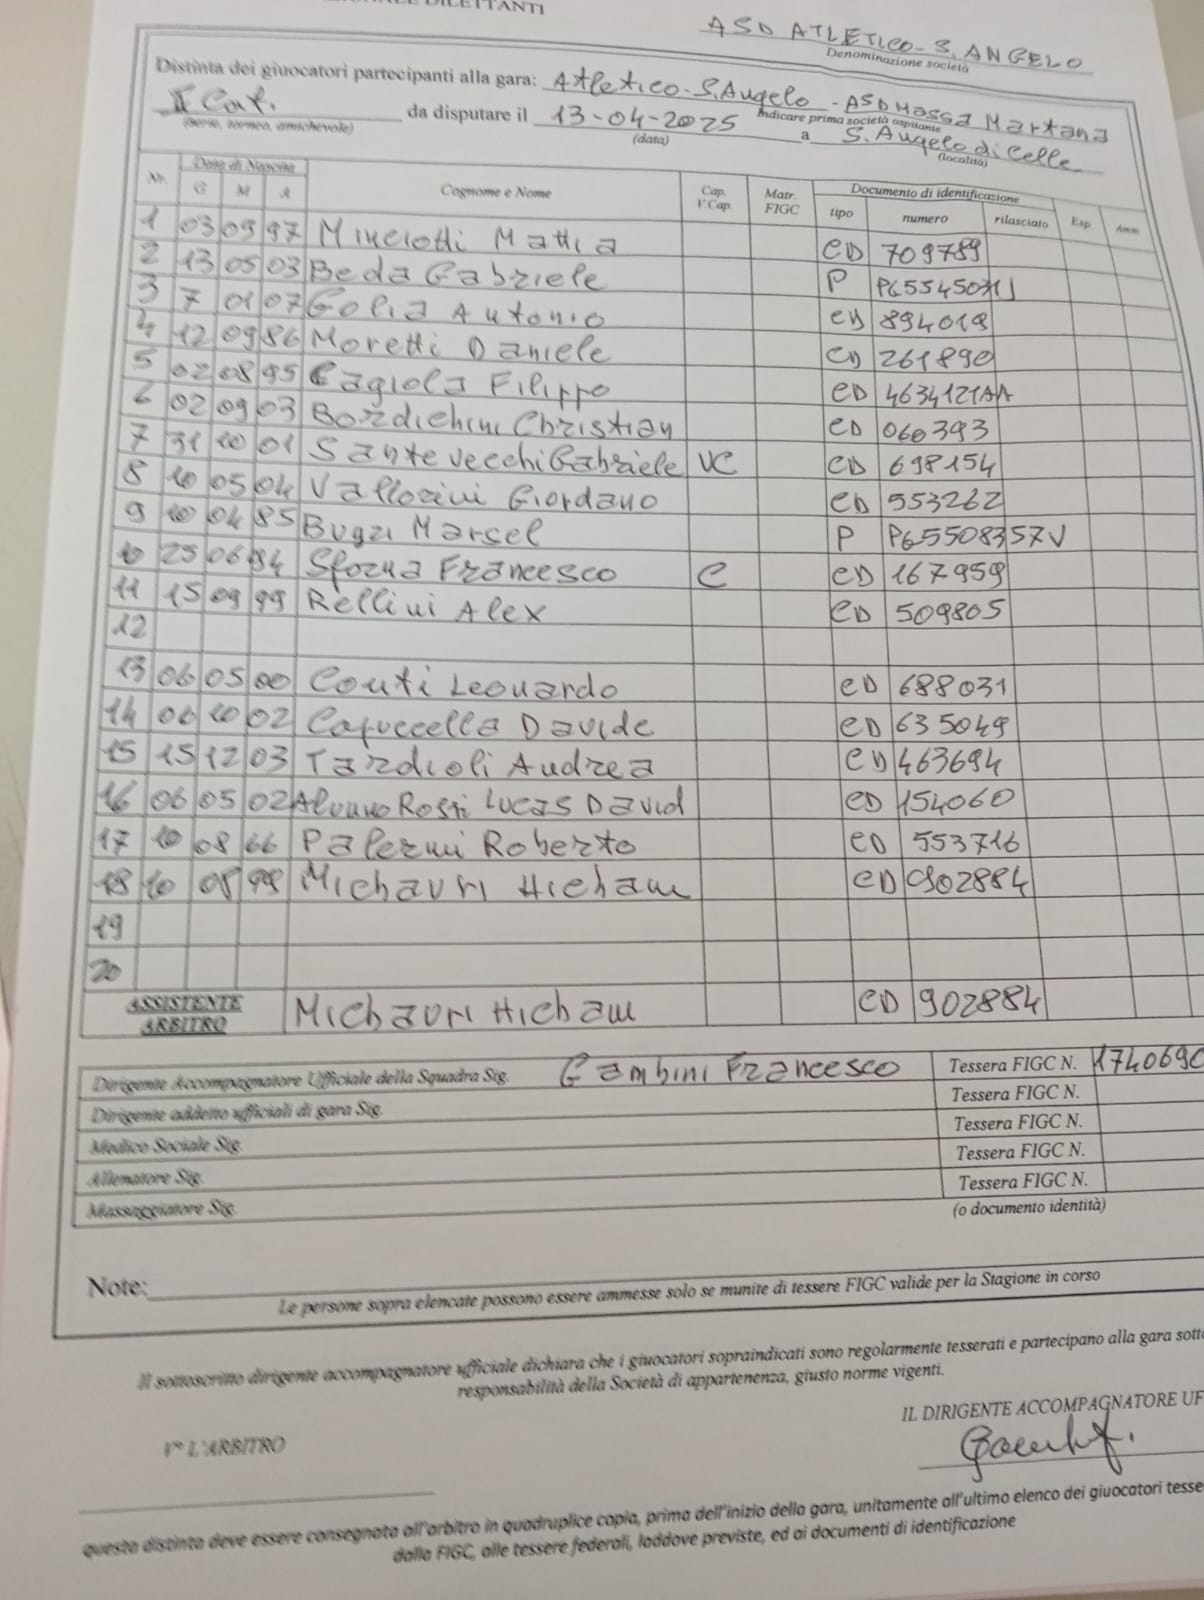 DILETTANTI
ASD ATLETICO - S. ANGELO
Denominazione società
Distinta dei giuocatori partecipanti alla gara: Atletico - S. Angelo - ASD Massa Martana
Indicare prima società ospitante
II Cat. da disputare il 13-04-2025 a S. Angelo di Celle
(serie, torneo, amichevole) (data) (località)
Nr. Data di Nascita Cognome e Nome Cap. V.Cap. Matr. FIGC Documento di identificazione Esp Amm
G M A tipo numero rilasciato
1 03 09 97 Minciotti Mattia CD 709789
2 13 05 03 Beda Gabriele P
3 7 01 07 Golia Antonio CD 894019
4 12 09 86 Moretti Daniele CD 261890
5 02 08 95 Cagiola Filippo CD 4634121AA
6 02 09 03 Bordichini Christian CD 060393
7 31 10 01 Santevecchi Gabriele VC CD 698154
8 10 05 04 Vallorini Giordano CD 553262
9 10 04 85 Bugzi Marsel P PG5508357V
10 25 06 94 Sforna Francesco C CD 167959
11 15 09 99 Rellini Alex CD 509805
12
13 06 05 00 Conti Leonardo CD 688031
14 06 10 02 Capuccella Davide CD 635049
15 15 12 03 Tardioli Andrea CD 463694
16 06 05 02 Rossi Lucas David CD 154060
17 10 08 66 Palermi Roberto CD 553716
18 10 08 99 Michauri Hicham CD 902884
19
20
ASSISTENTE ARBITRO Michauri Hicham CD 902884
Dirigente Accompagnatore Ufficiale della Squadra Sig. Gambini Francesco Tessera FIGC N. 1740690
Dirigente addetto ufficiali di gara Sig. Tessera FIGC N.
Medico Sociale Sig. Tessera FIGC N.
Allenatore Sig. Tessera FIGC N.
Massaggiatore Sig. Tessera FIGC N.
(o documento identità)
Note:
Le persone sopra elencate possono essere ammesse solo se munite di tessere FIGC valide per la Stagione in corso
Il sottoscritto dirigente accompagnatore ufficiale dichiara che i giuocatori sopraindicati sono regolarmente tesserati e partecipano alla gara sotto
responsabilità della Società di appartenenza, giusto norme vigenti.
IL DIRIGENTE ACCOMPAGNATORE UF
V° L'ARBITRO
questa distinta deve essere consegnata all'arbitro in quadruplice copia, prima dell'inizio della gara, unitamente all'ultimo elenco dei giuocatori tesse
dalla FIGC, alle tessere federali, laddove previste, ed ai documenti di identificazione